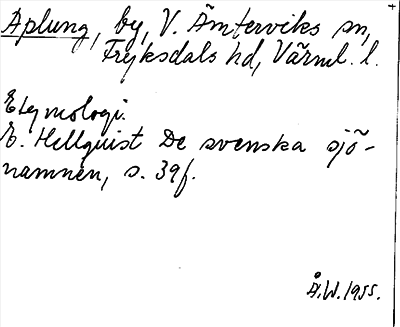 Aplung, by, V. Ämterviks sn,
Fryksdals hd, Värml. l.
Etymologi.
E. Hellquist De svenska sjö-
namnen, s. 39f.
Å.W. 1955.